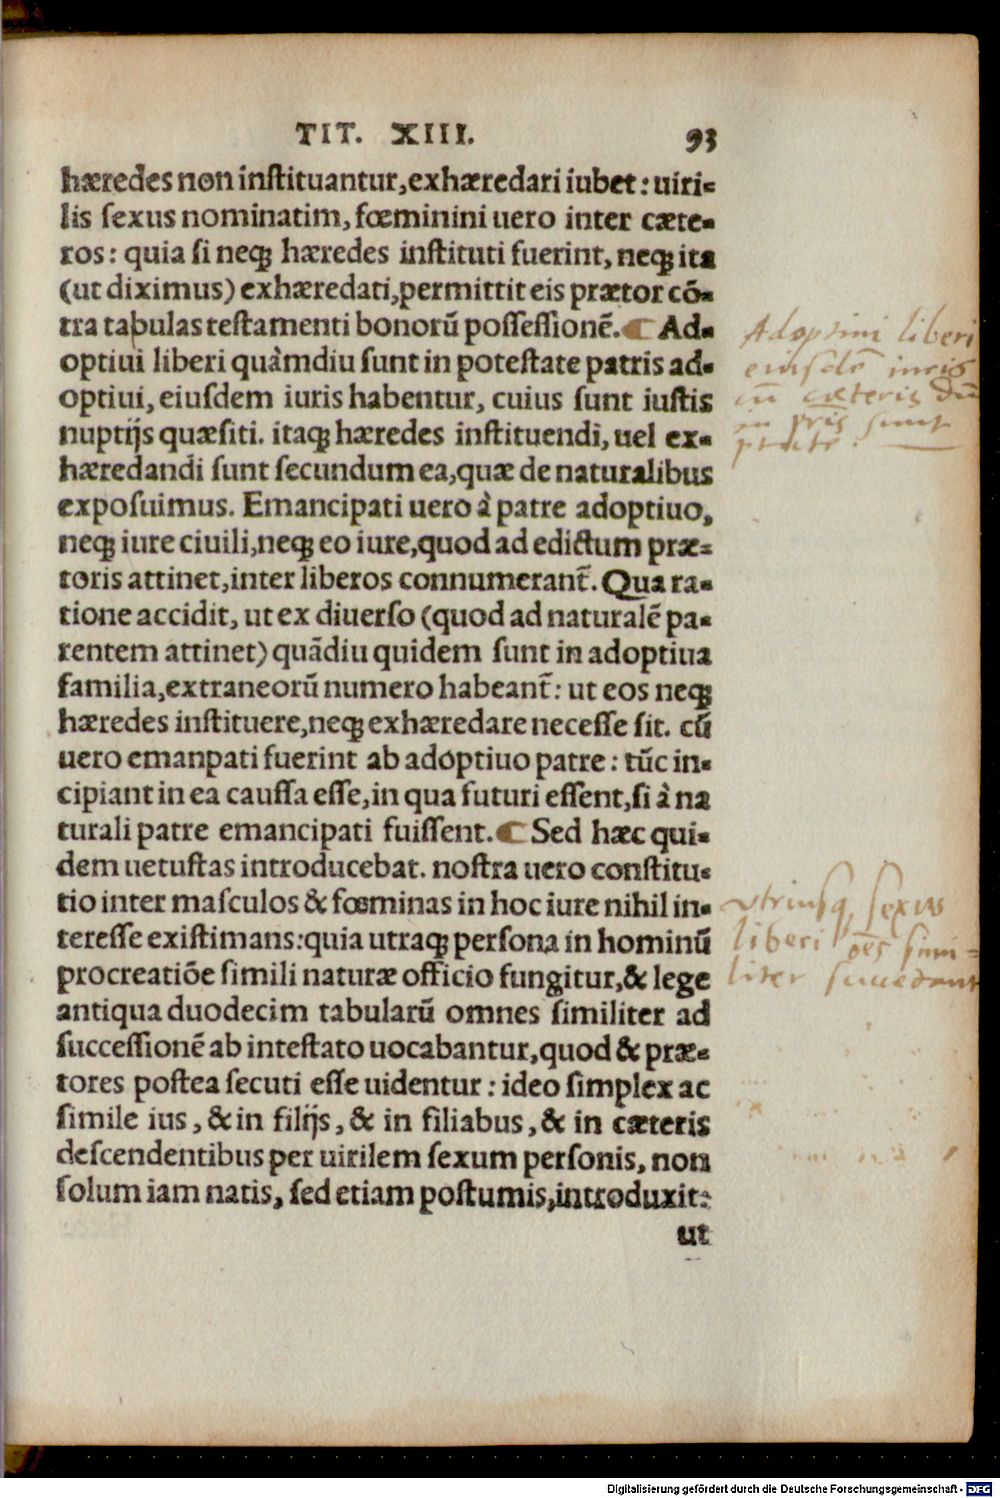 TIT. XIII. 93
hæredes non instituantur, exhæredari iubet: uiri-
lis sexus nominatim, fœminini uero inter cæte-
ros: quia si neq; hæredes instituti fuerint, neq; ita
(ut diximus) exhæredati, permittit eis prætor cō-
tra tabulas testamenti bonorū possessionē. Ad-
optiui liberi quàmdiu sunt in potestate patris ad-
optiui, eiusdem iuris habentur, cuius sunt iustis
nuptijs quæsiti. itaq; hæredes instituendi, uel ex-
hæredandi sunt secundum ea, quæ de naturalibus
exposuimus. Emancipati uero à patre adoptiuo,
neq; iure ciuili, neq; eo iure, quod ad edictum præ-
toris attinet, inter liberos connumerant̄. Qua ra-
tione accidit, ut ex diuerso (quod ad naturalē pa-
rentem attinet) quādiu quidem sunt in adoptiua
familia, extraneorū numero habeant̄: ut eos neq;
hæredes instituere, neq; exhæredare necesse sit. cū
uero emanpati fuerint ab adoptiuo patre: tūc in-
cipiant in ea caussa esse, in qua futuri essent, si à na
turali patre emancipati fuissent. Sed hæc qui-
dem uetustas introducebat. nostra uero constitu-
tio inter masculos & fœminas in hoc iure nihil in-
teresse existimans: quia utraq; persona in hominū
procreatiōe simili naturæ officio fungitur, & lege
antiqua duodecim tabularū omnes similiter ad
successionē ab intestato uocabantur, quod & præ-
tores postea secuti esse uidentur: ideo simplex ac
simile ius, & in filijs, & in filiabus, & in cæteris
descendentibus per uirilem sexum personis, non
solum iam natis, sed etiam postumis, introduxit:
ut
Adoptiui liberi
eiusdē iuris
cū cæteris dū
in pr̄is sunt
ptāte.
vtriusq; sexus
liberi oēs simi-
liter succedant
Digitalisierung gefördert durch die Deutsche Forschungsgemeinschaft - DFG